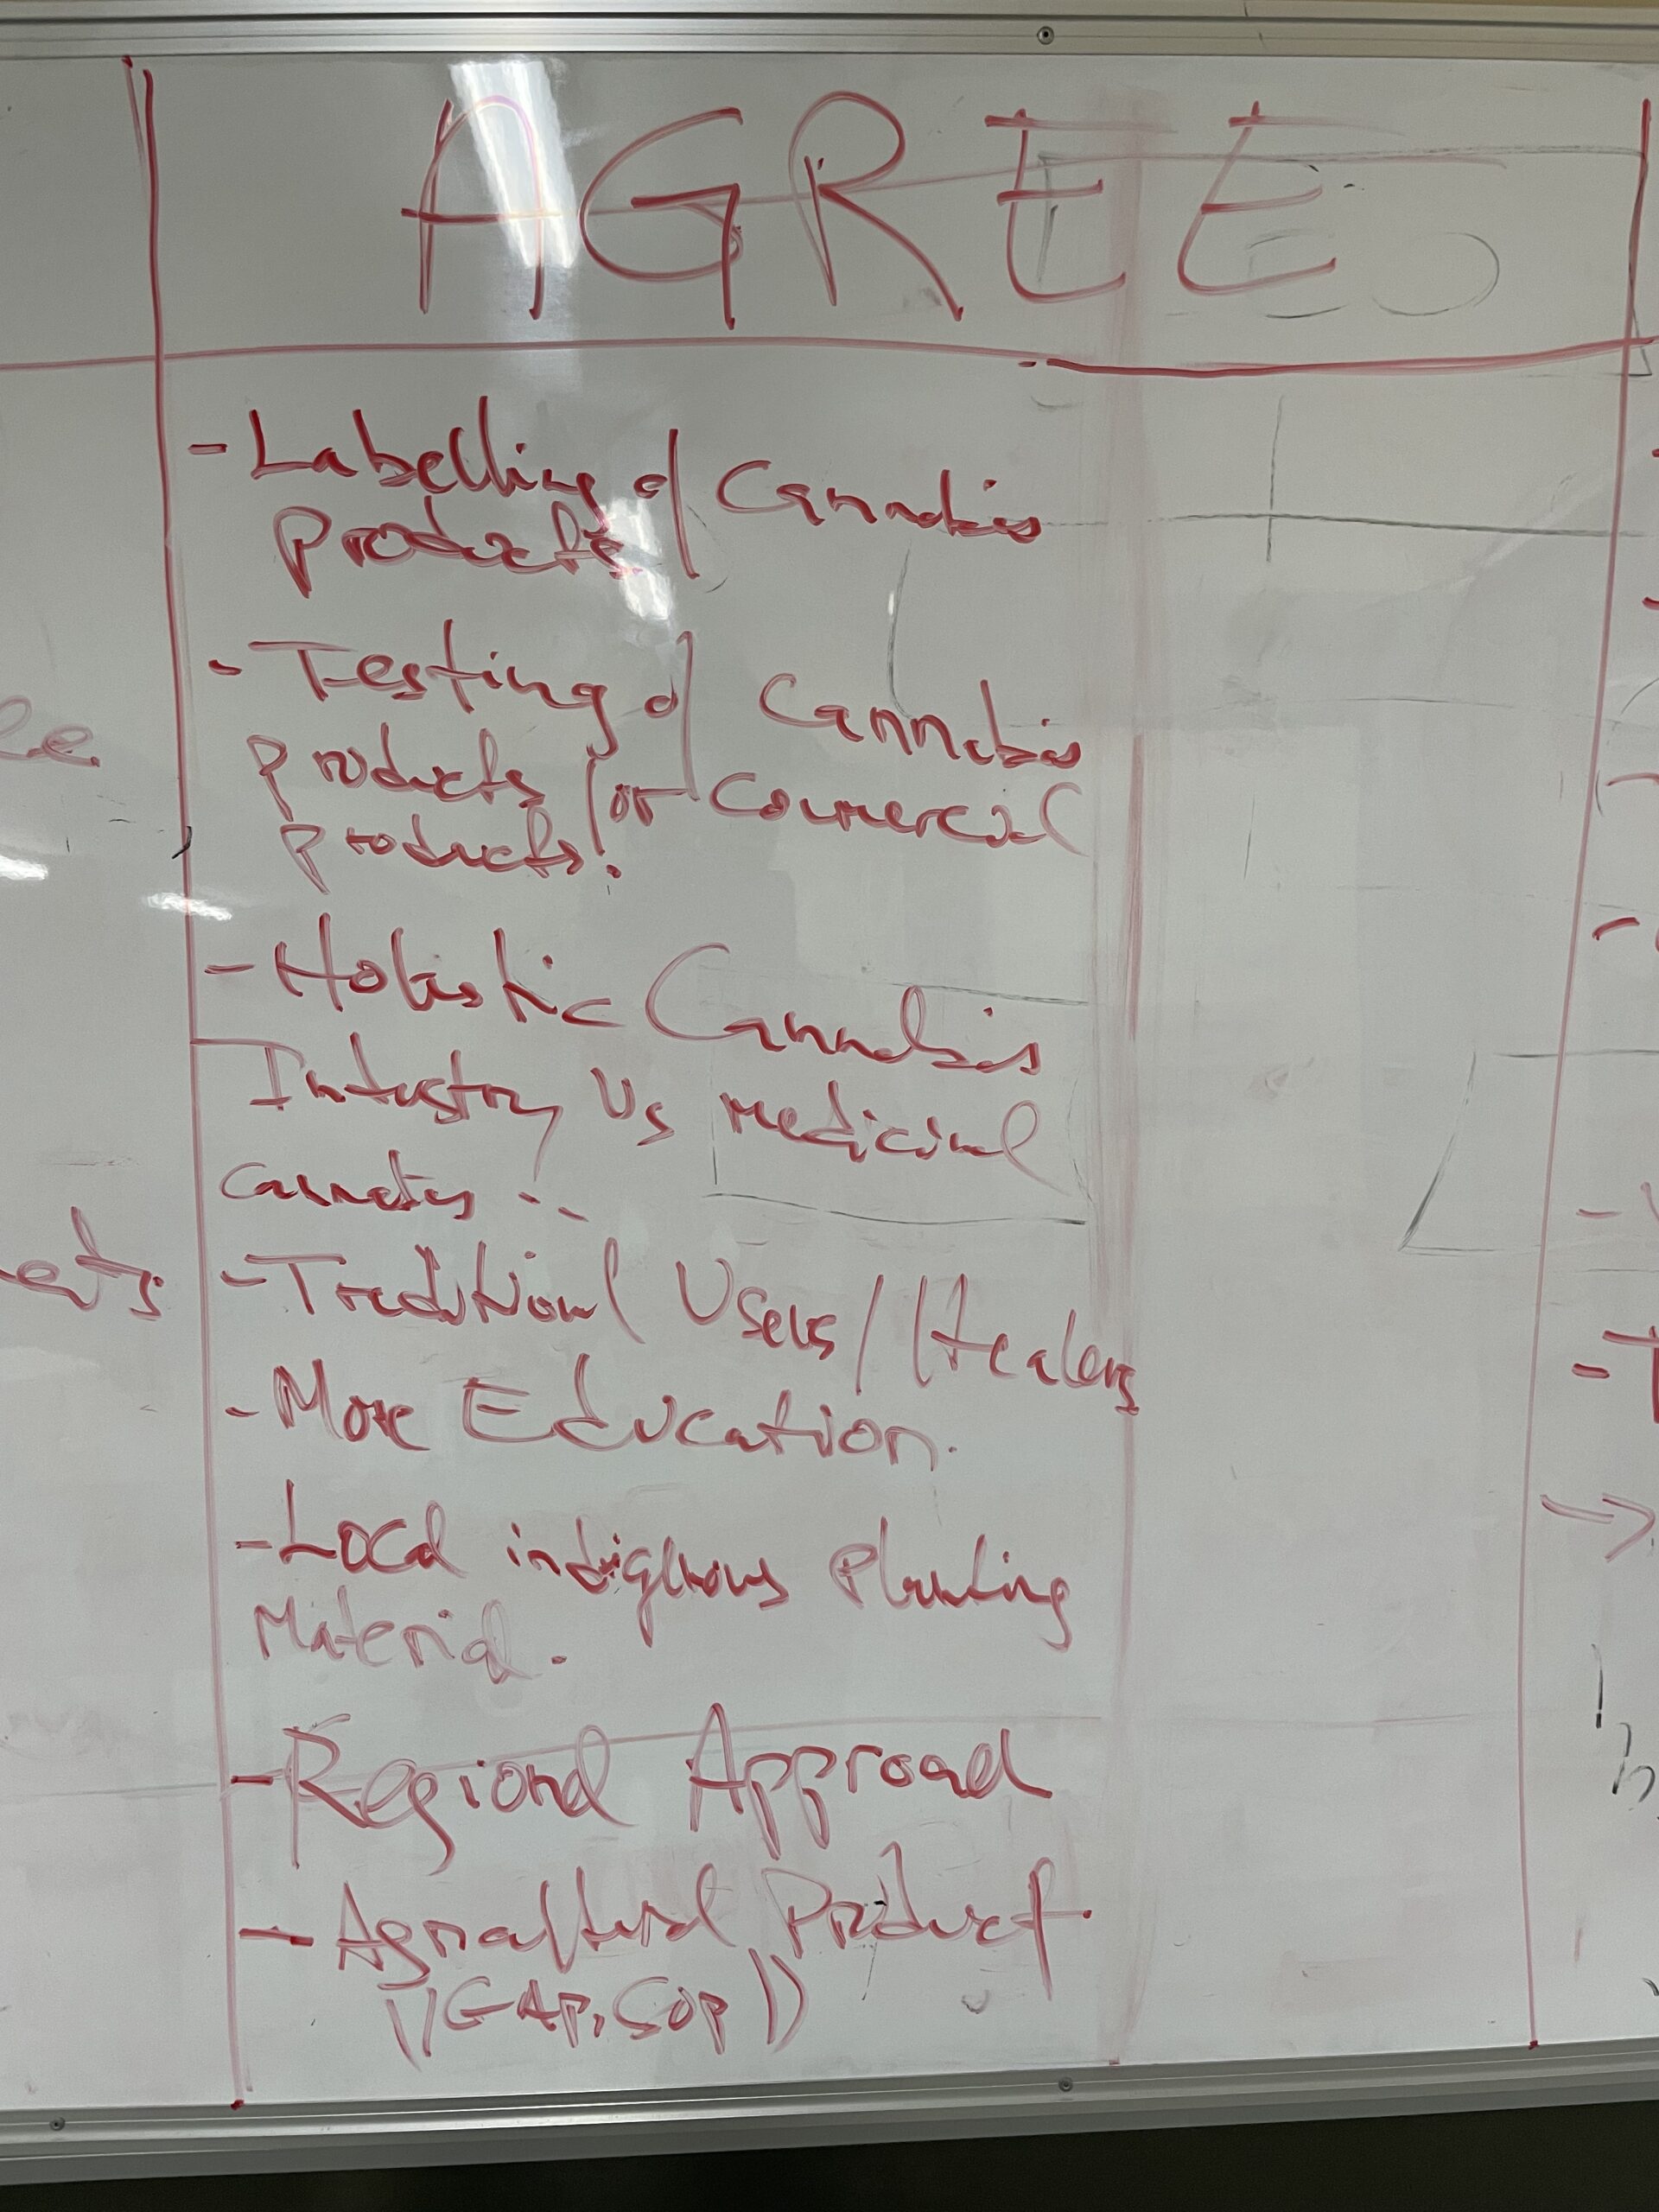 AGREE
- Labelling of Cannabis
products.
- Testing of Cannabis
products for Commercial
products.
- Holistic Cannabis
Industry Vs medicinal
- Traditional Users/Healers
- More Education.
- Local indigenous Planting
Material.
- Regional Approach
- Agricultural Product.
(GAP, SOP)